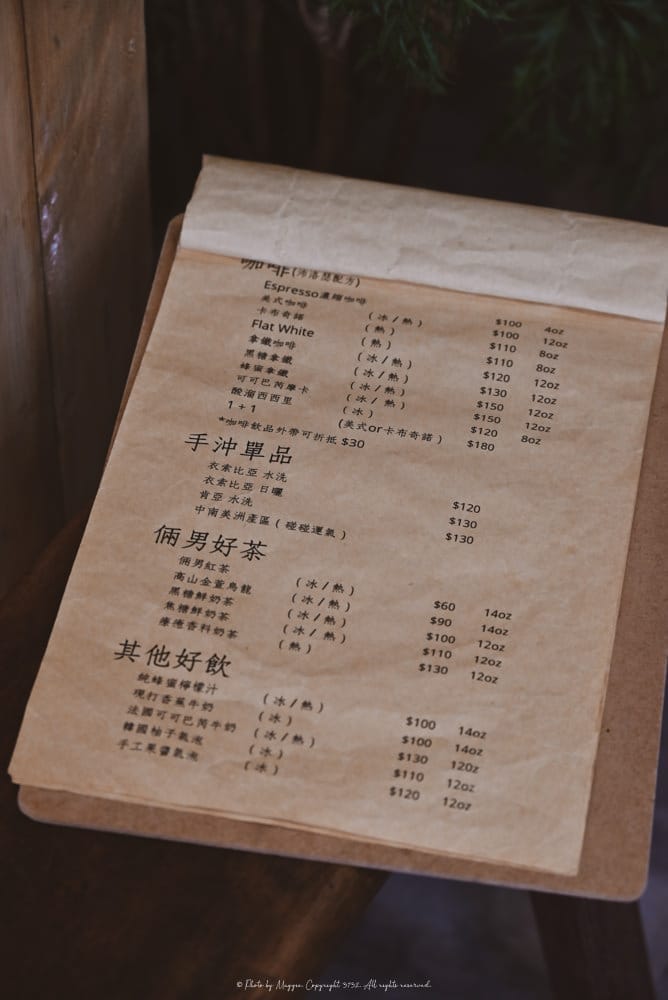 咖啡(沛洛瑟配方)
Espresso濃縮咖啡 $100 4oz
美式咖啡 (冰/熱) $100 12oz
卡布奇諾 (熱) $110 8oz
Flat White (熱) $110 8oz
拿鐵咖啡 (冰/熱) $120 12oz
黑糖拿鐵 (冰/熱) $130 12oz
蜂蜜拿鐵 (冰/熱) $150 12oz
可可巴芮摩卡 (冰/熱) $150 12oz
酸溜西西里 (冰) $120 8oz
1+1 (美式or卡布奇諾) $180
*咖啡飲品外帶可折抵$30
手沖單品
衣索比亞 水洗 $120
衣索比亞 日曬 $130
肯亞 水洗 $130
中南美洲產區(碰碰運氣)
倆男好茶
倆男紅茶 (冰/熱) $60 14oz
高山金萱烏龍 (冰/熱) $90 14oz
黑糖鮮奶茶 (冰/熱) $100 12oz
焦糖鮮奶茶 (冰/熱) $110 12oz
療癒香料奶茶 (熱) $130 12oz
其他好飲
純蜂蜜檸檬汁 (冰/熱) $100 14oz
現打香蕉牛奶 (冰) $100 14oz
法國可可巴芮牛奶 (冰/熱) $130 120z
韓國柚子氣泡 (冰) $110 12oz
手工果醬氣泡 (冰) $120 12oz
© Photo by Maggie. Copyright 3732. All rights reserved.